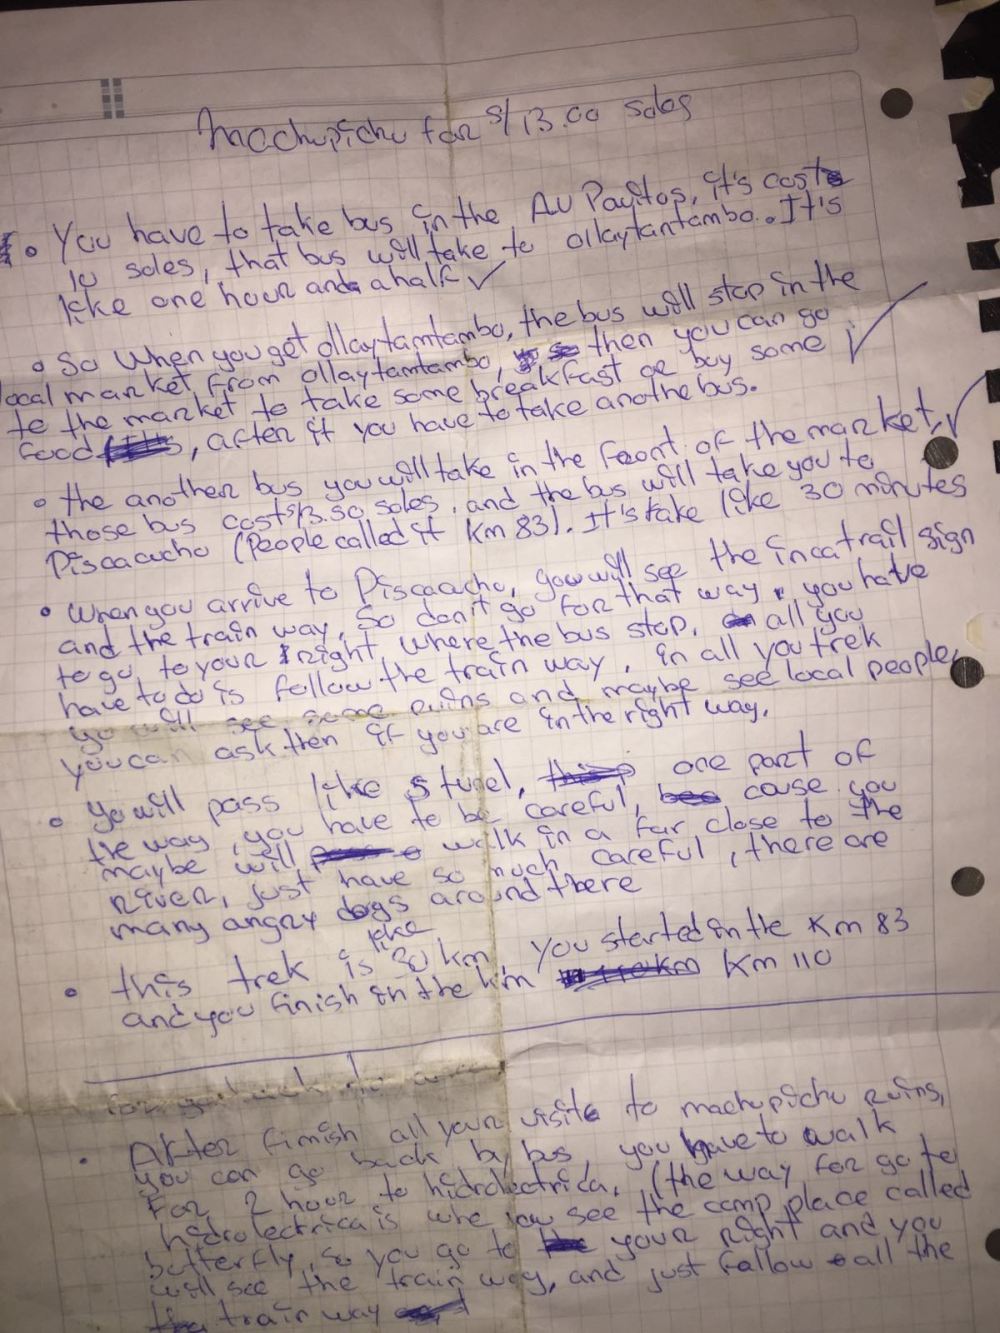 Machupichu for s/13.00 soles
• You have to take bus in the AU Pavitos, it's cost
10 soles, that bus will take to ollaytantambo. It's
like one hour and a half ✓
• So when you get ollaytamtambo, the bus will stop in the
local market from ollaytamtambo, then you can go
to the market to take some breakfast or buy some
food, after it you have to take anothe bus.
• the another bus you will take in the front of the market,
those bus cost s/3.50 soles, and the bus will take you to
Piscacucho (People called it Km 83). It's take like 30 minutes
• when you arrive to Piscacucho, you will see the inca trail sign
and the train way, so don't go for that way, you have
to go to your right where the bus stop. all you
have to do is follow the train way, in all you trek
yo will see some ruins and maybe see local people,
you can ask then if you are in the right way.
• yo will pass like 5 tunel, one part of
the way, you have to be careful, cause you
maybe will walk in a far close to the
river, just have so much careful, there are
many angry dogs around there
• this trek is like 30 km you started in the Km 83
and you finish in the km Km 110
• After finish all your visite to machupichu ruins,
you can go back by bus you have to walk
For 2 hour to hidrolectrica. (the way for go to
hidrolectrica is whe you see the camp place called
butterfly, so you go to your right and you
will see the train way, and just follow all the
train way